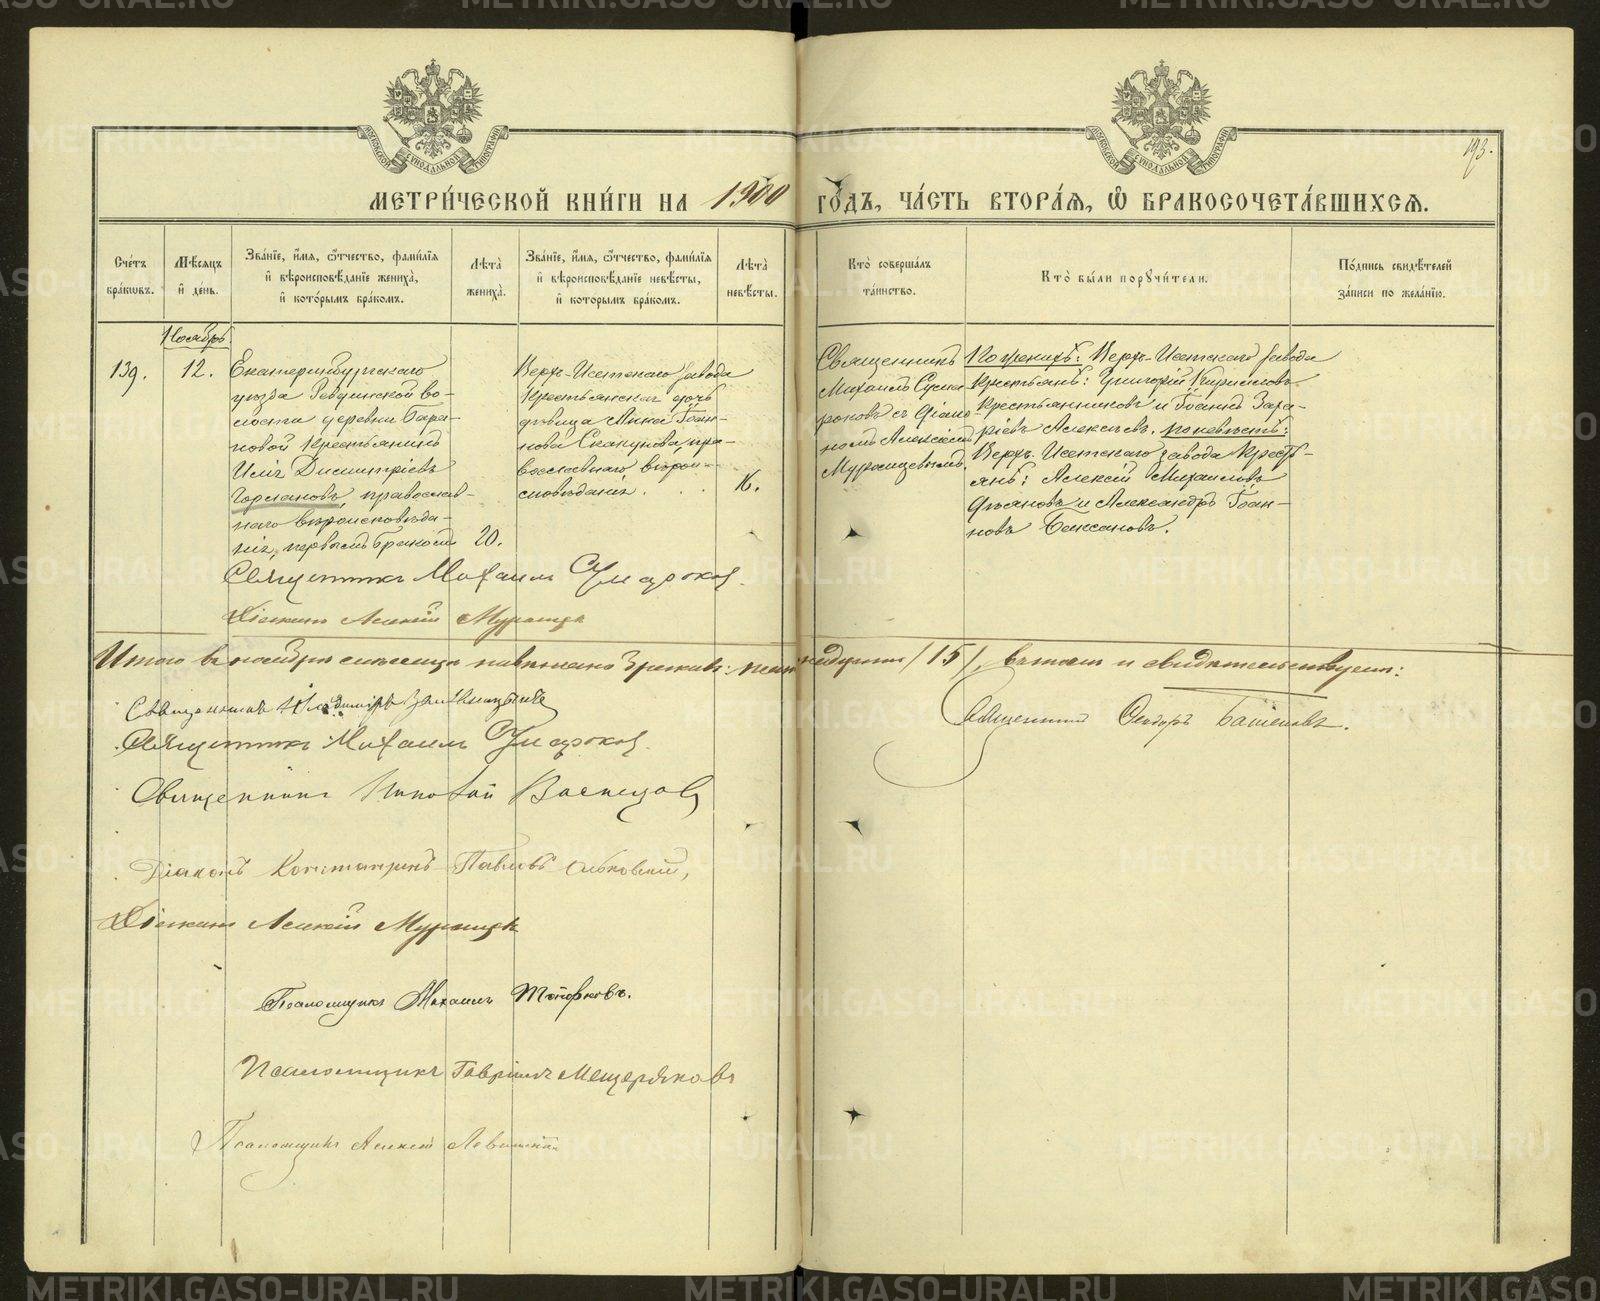 193.
МЕТРИ́ЧЕСКОЙ КНИ́ГИ НА 1900 ГО́ДЪ, ЧА́СТЬ ВТОРА́Я, Ѡ БРАКОСОЧЕТА́ВШИХСЯ.
Сче́тъ бра́ковъ.
Мѣ́сяцъ и де́нь.
Зва́нїе, и́мя, о́тчество, фами́лїя и вѣроисповѣ́данїе жениха̀, и кото́рымъ бра́комъ.
Лѣ́та жениха̀.
Зва́нїе, и́мя, о́тчество, фами́лїя и вѣроисповѣ́данїе невѣ́сты, и кото́рымъ бра́комъ.
Лѣ́та невѣ́сты.
Кто̀ соверша́лъ та́инство.
Кто̀ бы́ли поручи́тели.
По́дпись свидѣ́телей за́писи по жела́нїю.
Ноябрь
139.
12.
Екатеринбургскаго
уѣзда Ревдинской во-
лости деревни Бара-
новой крестьянинъ
Илія Димитріевъ
Горлановъ, православ-
наго вѣроисповѣда-
нія, первымъ бракомъ
20.
Верхъ-Исетскаго завода
крестьянская дочь
дѣвица Анна Іоан-
нова Скакунова, пра-
вославнаго вѣрои-
сповѣданія.
16.
Священникъ
Михаилъ
съ діако-
номъ Алексіемъ
Мурзинцевымъ.
По женихѣ: Верхъ-Исетскаго завода
крестьянъ: Григорій Кирилловъ
Крестьянниковъ и Іоаннъ Заха-
ріевъ Алексѣевъ. по невѣстѣ:
Верхъ-Исетскаго завода крестъ-
янъ: Алексій Михаиловъ
и Александръ Іоан-
новъ
Священникъ Михаилъ
Діаконъ Алексій
Итого въ ноябрѣ мѣсяцѣ повѣнчано браковъ: пятнадцать /15/, въ томъ и свидѣтельствуемъ:
Священникъ Владиміръ
Священникъ Ѳеодоръ
Священникъ Михаилъ
Священникъ Николай Васнецовъ
Діаконъ Константинъ Павловъ
Діаконъ Алексій
Псаломщикъ Михаилъ Топорковъ.
Псаломщикъ Гавріилъ Мещеряковъ
Псаломщикъ Алексій
METRIKI.GASO-URAL.RU